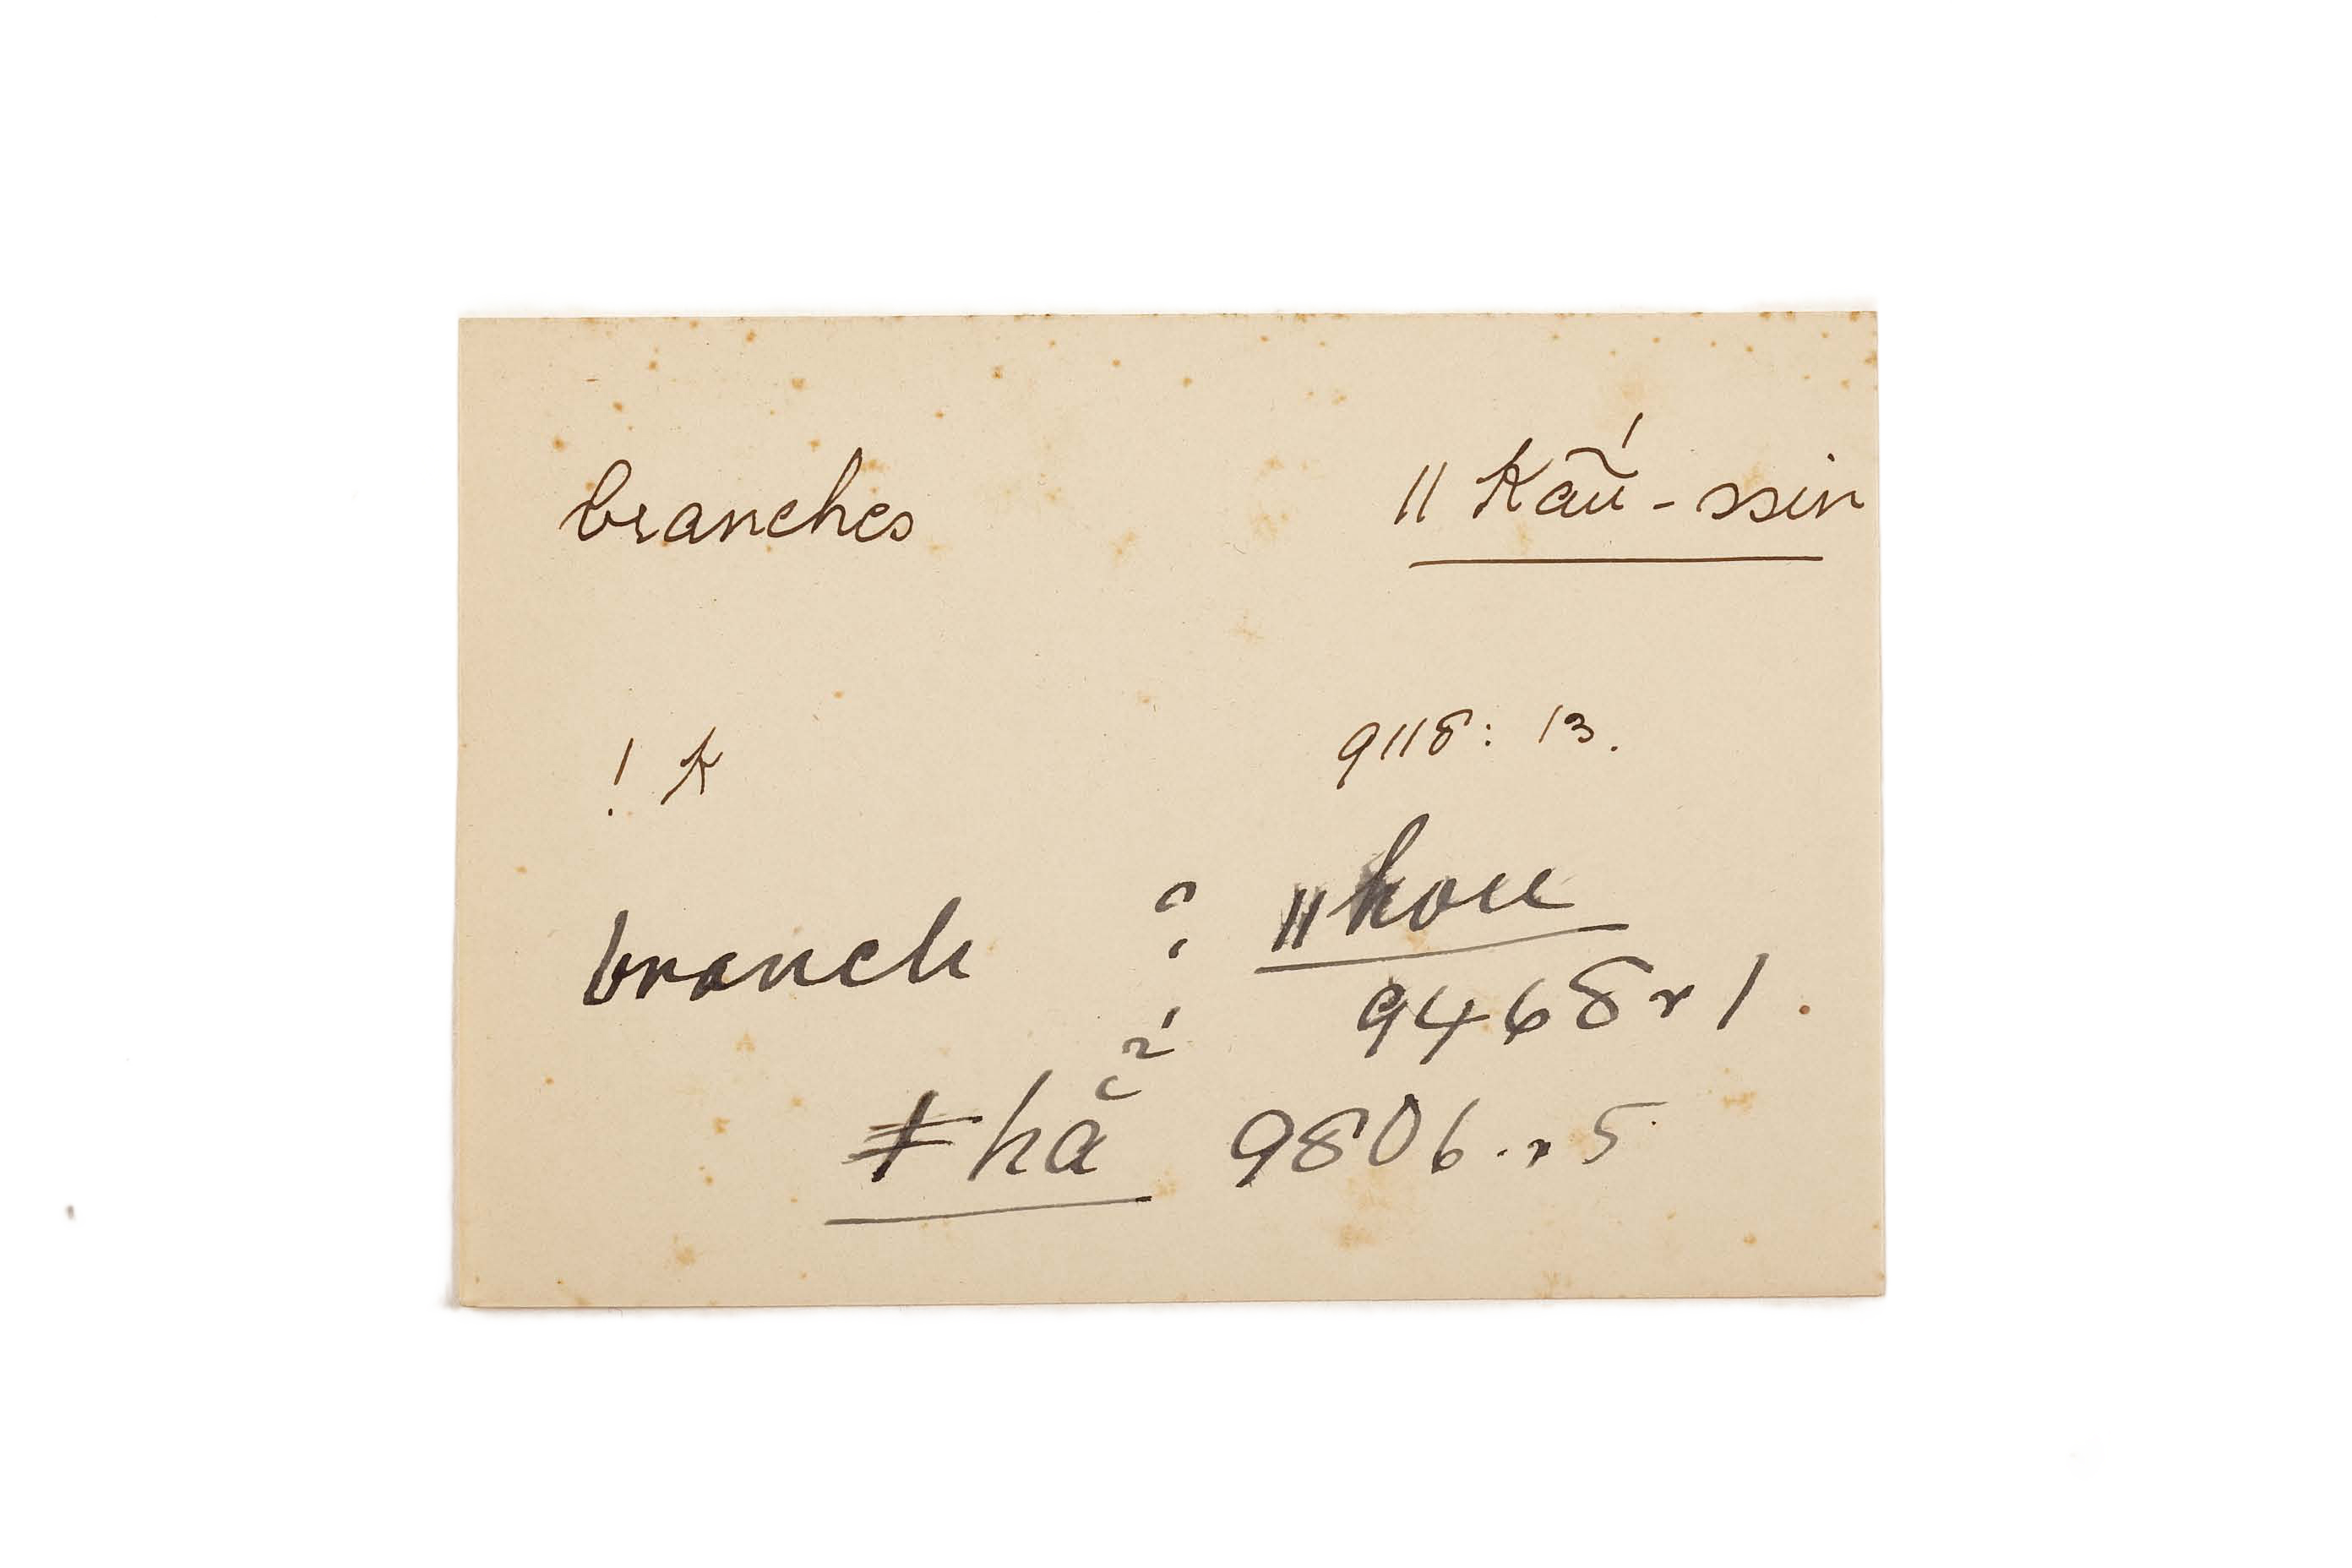 branches ‖ Kãú-ssin
! K 9118: 13.
branch ? ‖hou
9468 r 1.
ǂhã 9806. r 5